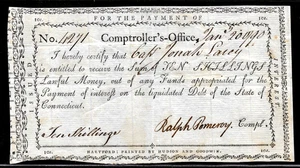 FOR THE PAYMENT OF INTEREST
No. 1271 Comptroller's-Office, Jan 20 1790
I hereby certify that Capt Josiah Lacey
is entitled to receive the Sum of TEN SHILLINGS
Lawful Money, out of any Funds appropriated for the
Payment of interest on the liquidated Debt of the State of
Connecticut.
Ten Shillings Ralph Pomeroy, Compt.
HARTFORD; PRINTED BY HUDSON AND GOODWIN.
ISSUED
INTEREST